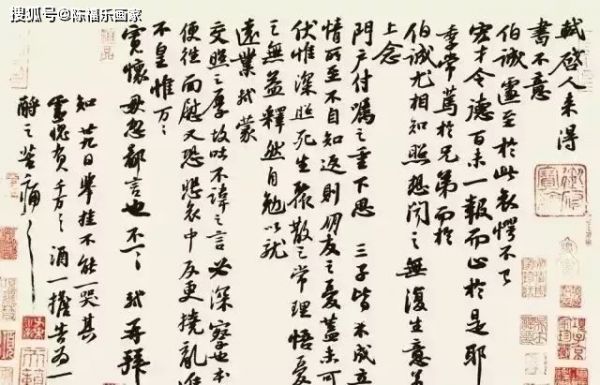 搜狐号@陈福乐画家
軾啓人來得
書不意
伯誠遽至於此哀愕不已
宏才令德百未一報而止於是耶
季常篤於兄弟而於
伯誠尤相知照想聞之無復生意若
上念
門户付囑之重下思三子皆不成立
情所至不自知返則朋友之憂蓋未可
伏惟深照死生聚散之常理悟憂
之無益釋然自勉以就
遠業軾蒙
交照之厚故吐不諱之言必深察也本
便往面慰又恐悲哀中反更撓亂進
不皇惟万万
寬懷毋忽鄙言也不一一軾再拜
知廿九日舉挂不能一哭其
靈愧負千万千万酒一擔告為一
酹之苦痛苦痛